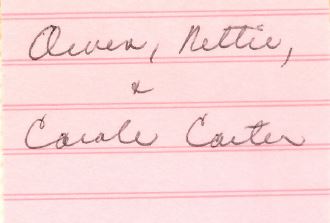 Owen, Nettie,
&
Carole Carter